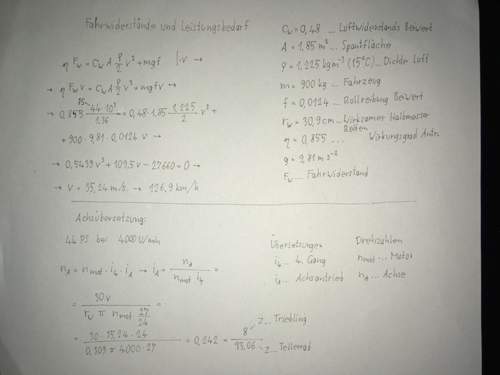 Fahrwiderstände und Leistungsbedarf
η F_W = C_W A ρ/2 v² + mgf |·v →
→ η F_W v = C_W A ρ/2 v³ + mgfv →
→ 0,855 · 44·10³/1,36 = 0,48·1,85 · 1,225/2 v³ +
+ 900·9,81·0,0124 v →
→ 0,5439 v³ + 109,5 v − 27660 = 0 →
→ v = 35,24 m/s. → 126,9 km/h
C_W = 0,48 ... Luftwiderstands Beiwert
A = 1,85 m² ... Spantfläche
ρ = 1,225 kgm⁻³ (15°C) ... Dichte Luft
m = 900 kg ... Fahrzeug
f = 0,0124 ... Rollreibung Beiwert
r_W = 30,9 cm ... Wirksamer Halbmesser Reifen
η = 0,855 ... Wirkungsgrad Antr.
g = 9,81 m s⁻²
F_W ... Fahrwiderstand
Achsübersetzung:
44 PS bei 4000 U/min
n_A = n_mot · i_4 · i_A → i_A = n_A / n_mot i_4 =
= 30 v / r_W π n_mot 27/24 =
= 30·35,24·24 / 0,309 π 4000·27 = 0,242 = 8 / 33,06
z... Triebling
z... Tellerrad
Übersetzungen
i_4 ... 4. Gang
i_A ... Achsantrieb
Drehzahlen
n_mot ... Motor
n_A ... Achse